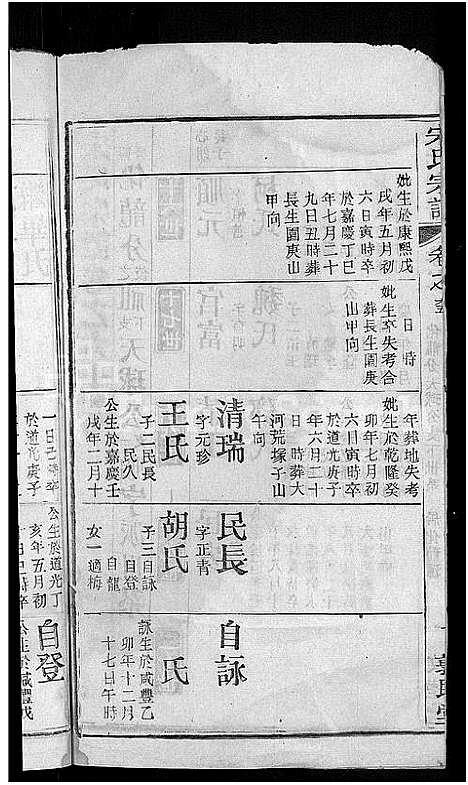 宋氏宗譜
卷之
妣生於康熙戊
戌年五月初
六日寅時卒
於嘉慶丁巳
年七月二十
九日丑時葬
長生園庚山
甲向
日時
妣生卒失考合
葬長生園庚
山甲向
年葬地失考
妣生於乾隆癸
卯年七月初
六日寅時卒
於道光庚子
年六月二十
日時葬大
河荒塚子山
午向
清瑞
字元珍
王氏
子二民長
民久
公生於嘉慶壬
戌年二月十
民長
字正青
胡氏
子三自詠
自登
自龍
女一適梅
自詠
氏
詠生於咸豐乙
卯年十二月
十七日午時
一日己時卒
於道光庚子
公生於道光丁
亥年五月初
自登
公生於咸豐戊